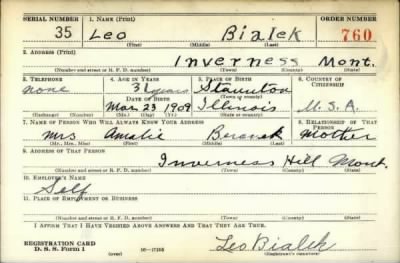 SERIAL NUMBER 1. NAME (Print) ORDER NUMBER
35 Leo Bialek 760
(First) (Middle) (Last)
2. ADDRESS (Print)
Inverness Mont.
(Number and street or R. F. D. number) (Town) (County) (State)
3. TELEPHONE 4. AGE IN YEARS 5. PLACE OF BIRTH 6. COUNTRY OF CITIZENSHIP
none 31 years Staunton
DATE OF BIRTH (Town or county)
Mar 23 1909 Illinois U.S.A.
(Exchange) (Number) (Mo.) (Day) (Yr.) (State or country)
7. NAME OF PERSON WHO WILL ALWAYS KNOW YOUR ADDRESS 8. RELATIONSHIP OF THAT PERSON
Mrs Amalie Beranek Mother
(Mr., Mrs., Miss) (First) (Middle) (Last)
9. ADDRESS OF THAT PERSON
Inverness Hill Mont.
(Number and street or R. F. D. number) (Town) (County) (State)
10. EMPLOYER'S NAME
Self
11. PLACE OF EMPLOYMENT OR BUSINESS
(Number and street or R. F. D. number) (Town) (County) (State)
I AFFIRM THAT I HAVE VERIFIED ABOVE ANSWERS AND THAT THEY ARE TRUE.
REGISTRATION CARD
D. S. S. Form 1 (over) 16—17105 Leo Bialek
(Registrant's signature)